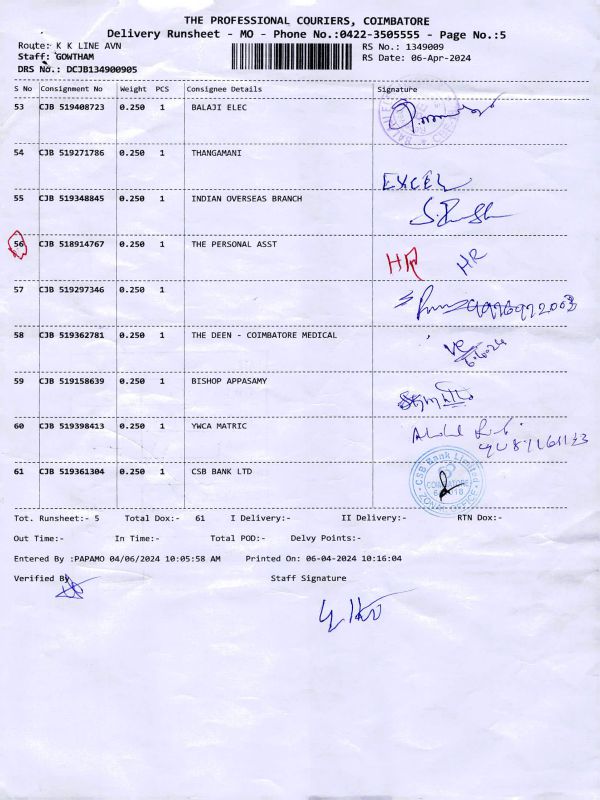 THE PROFESSIONAL COURIERS, COIMBATORE
Delivery Runsheet - MO - Phone No.:0422-3505555 - Page No.:5
Route: K K LINE AVN RS No.: 1349009
Staff: GOWTHAM RS Date: 06-Apr-2024
DRS No.: DCJB134900905
S No Consignment No Weight PCS Consignee Details Signature
53 CJB 519408723 0.250 1 BALAJI ELEC
54 CJB 519271786 0.250 1 THANGAMANI
EXCEL
55 CJB 519348845 0.250 1 INDIAN OVERSEAS BRANCH
56 CJB 518914767 0.250 1 THE PERSONAL ASST
HR HR
57 CJB 519297346 0.250 1
58 CJB 519362781 0.250 1 THE DEEN - COIMBATORE MEDICAL
6.4.24
59 CJB 519158639 0.250 1 BISHOP APPASAMY
60 CJB 519398413 0.250 1 YWCA MATRIC
61 CJB 519361304 0.250 1 CSB BANK LTD
CSB Bank Limited
COIMBATORE
ZONAL OFFICE
Tot. Runsheet:- 5 Total Dox:- 61 I Delivery:- II Delivery:- RTN Dox:-
Out Time:- In Time:- Total POD:- Delvy Points:-
Entered By :PAPAMO 04/06/2024 10:05:58 AM Printed On: 06-04-2024 10:16:04
Verified By Staff Signature